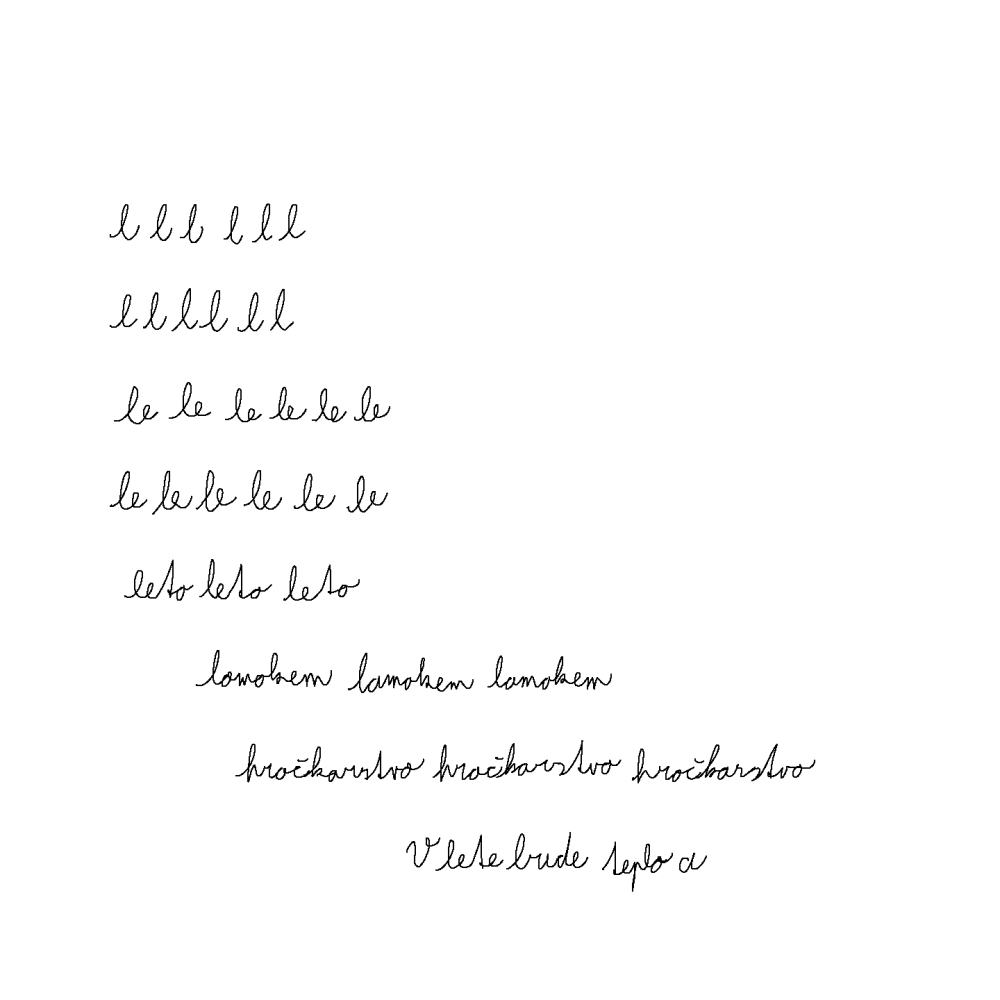 l l l l l l
l l l l l l
le le le le le le
le le le le le le
leto leto leto
lamokem lamokem lamokem
hročkarstvo hročkarstvo hročkarstvo
V lete bude teplo a